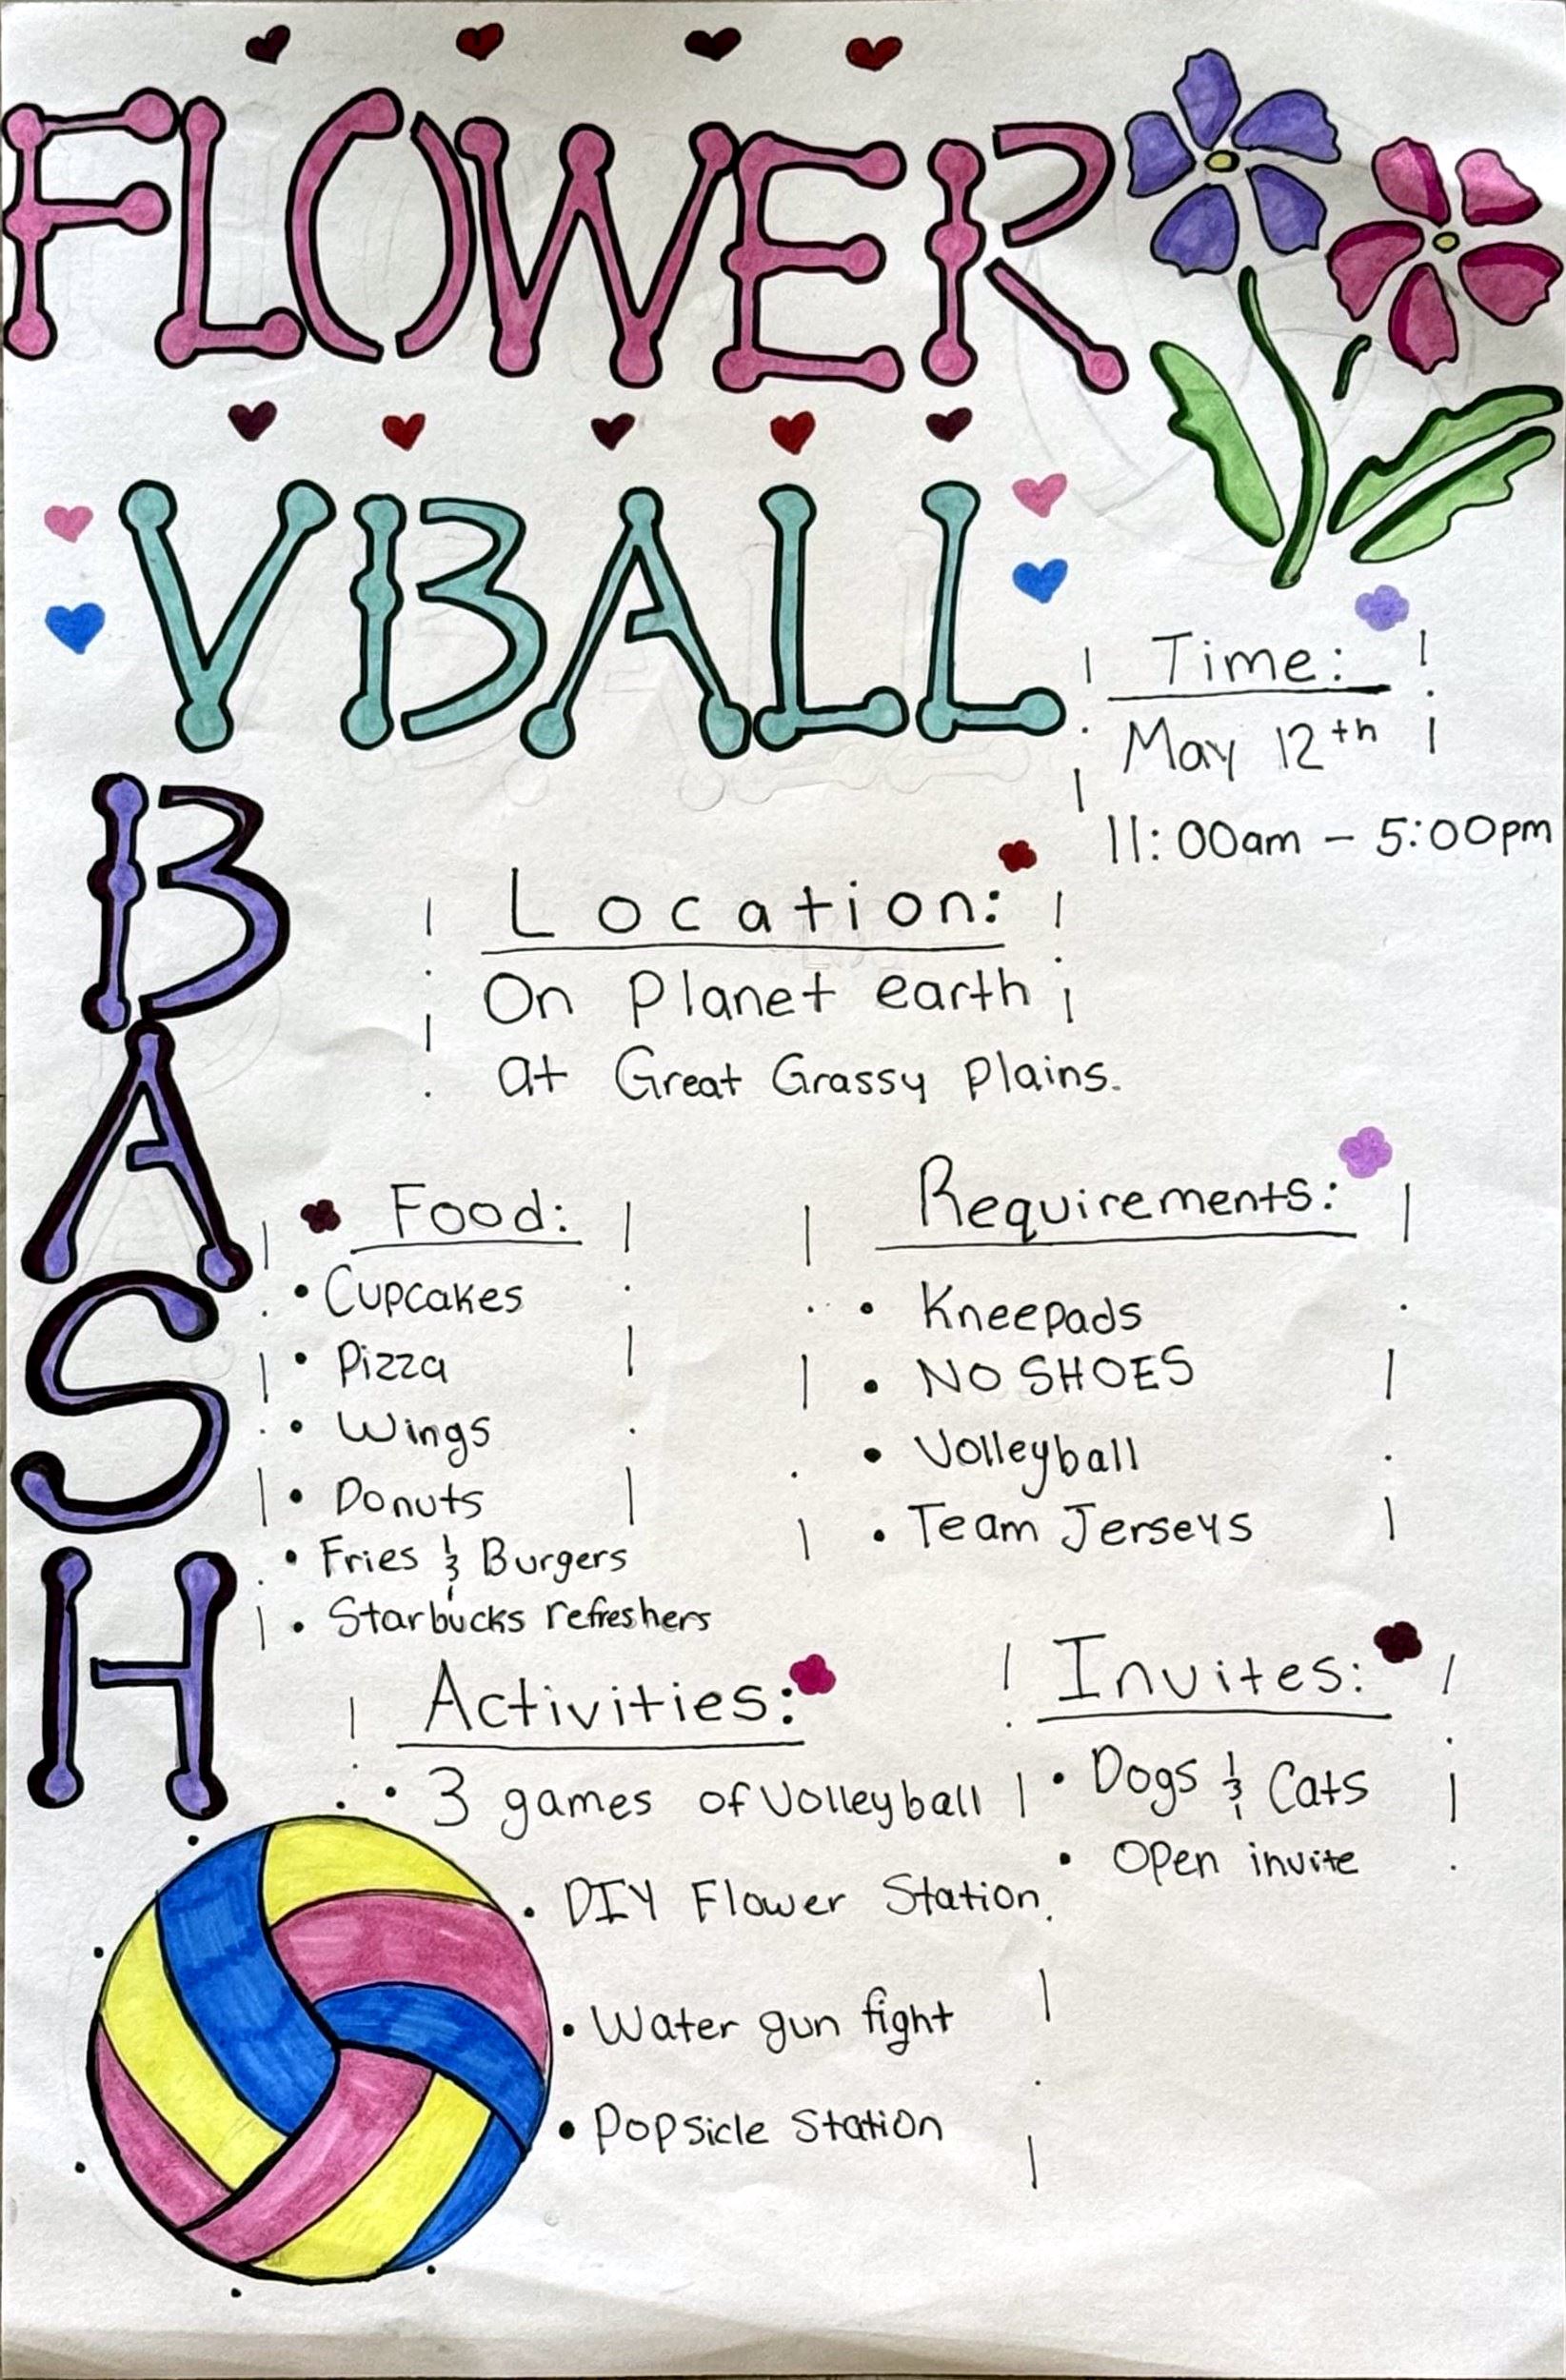 FLOWER
VBALL
BASH
Time:
May 12th
11:00am - 5:00pm
Location:
On Planet earth
at Great Grassy Plains.
Food:
• Cupcakes
• Pizza
• Wings
• Donuts
• Fries & Burgers
• Starbucks refreshers
Requirements:
• Kneepads
• NO SHOES
• Volleyball
• Team Jerseys
Activities:
• 3 games of Volleyball
• DIY Flower Station
• Water gun fight
• Popsicle Station
Invites:
• Dogs & Cats
• Open invite